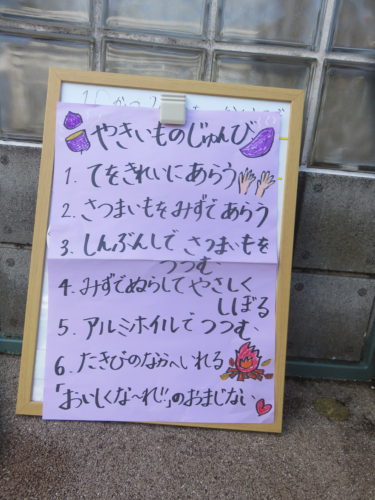 やきいものじゅんび
1. てをきれいにあらう
2. さつまいもをみずであらう
3. しんぶんしで さつまいもを
つつむ
4. みずでぬらしてやさしく
しぼる
5. アルミホイルでつつむ
6. たきびのなかへいれる
「おいしくな〜れ!!」のおまじない